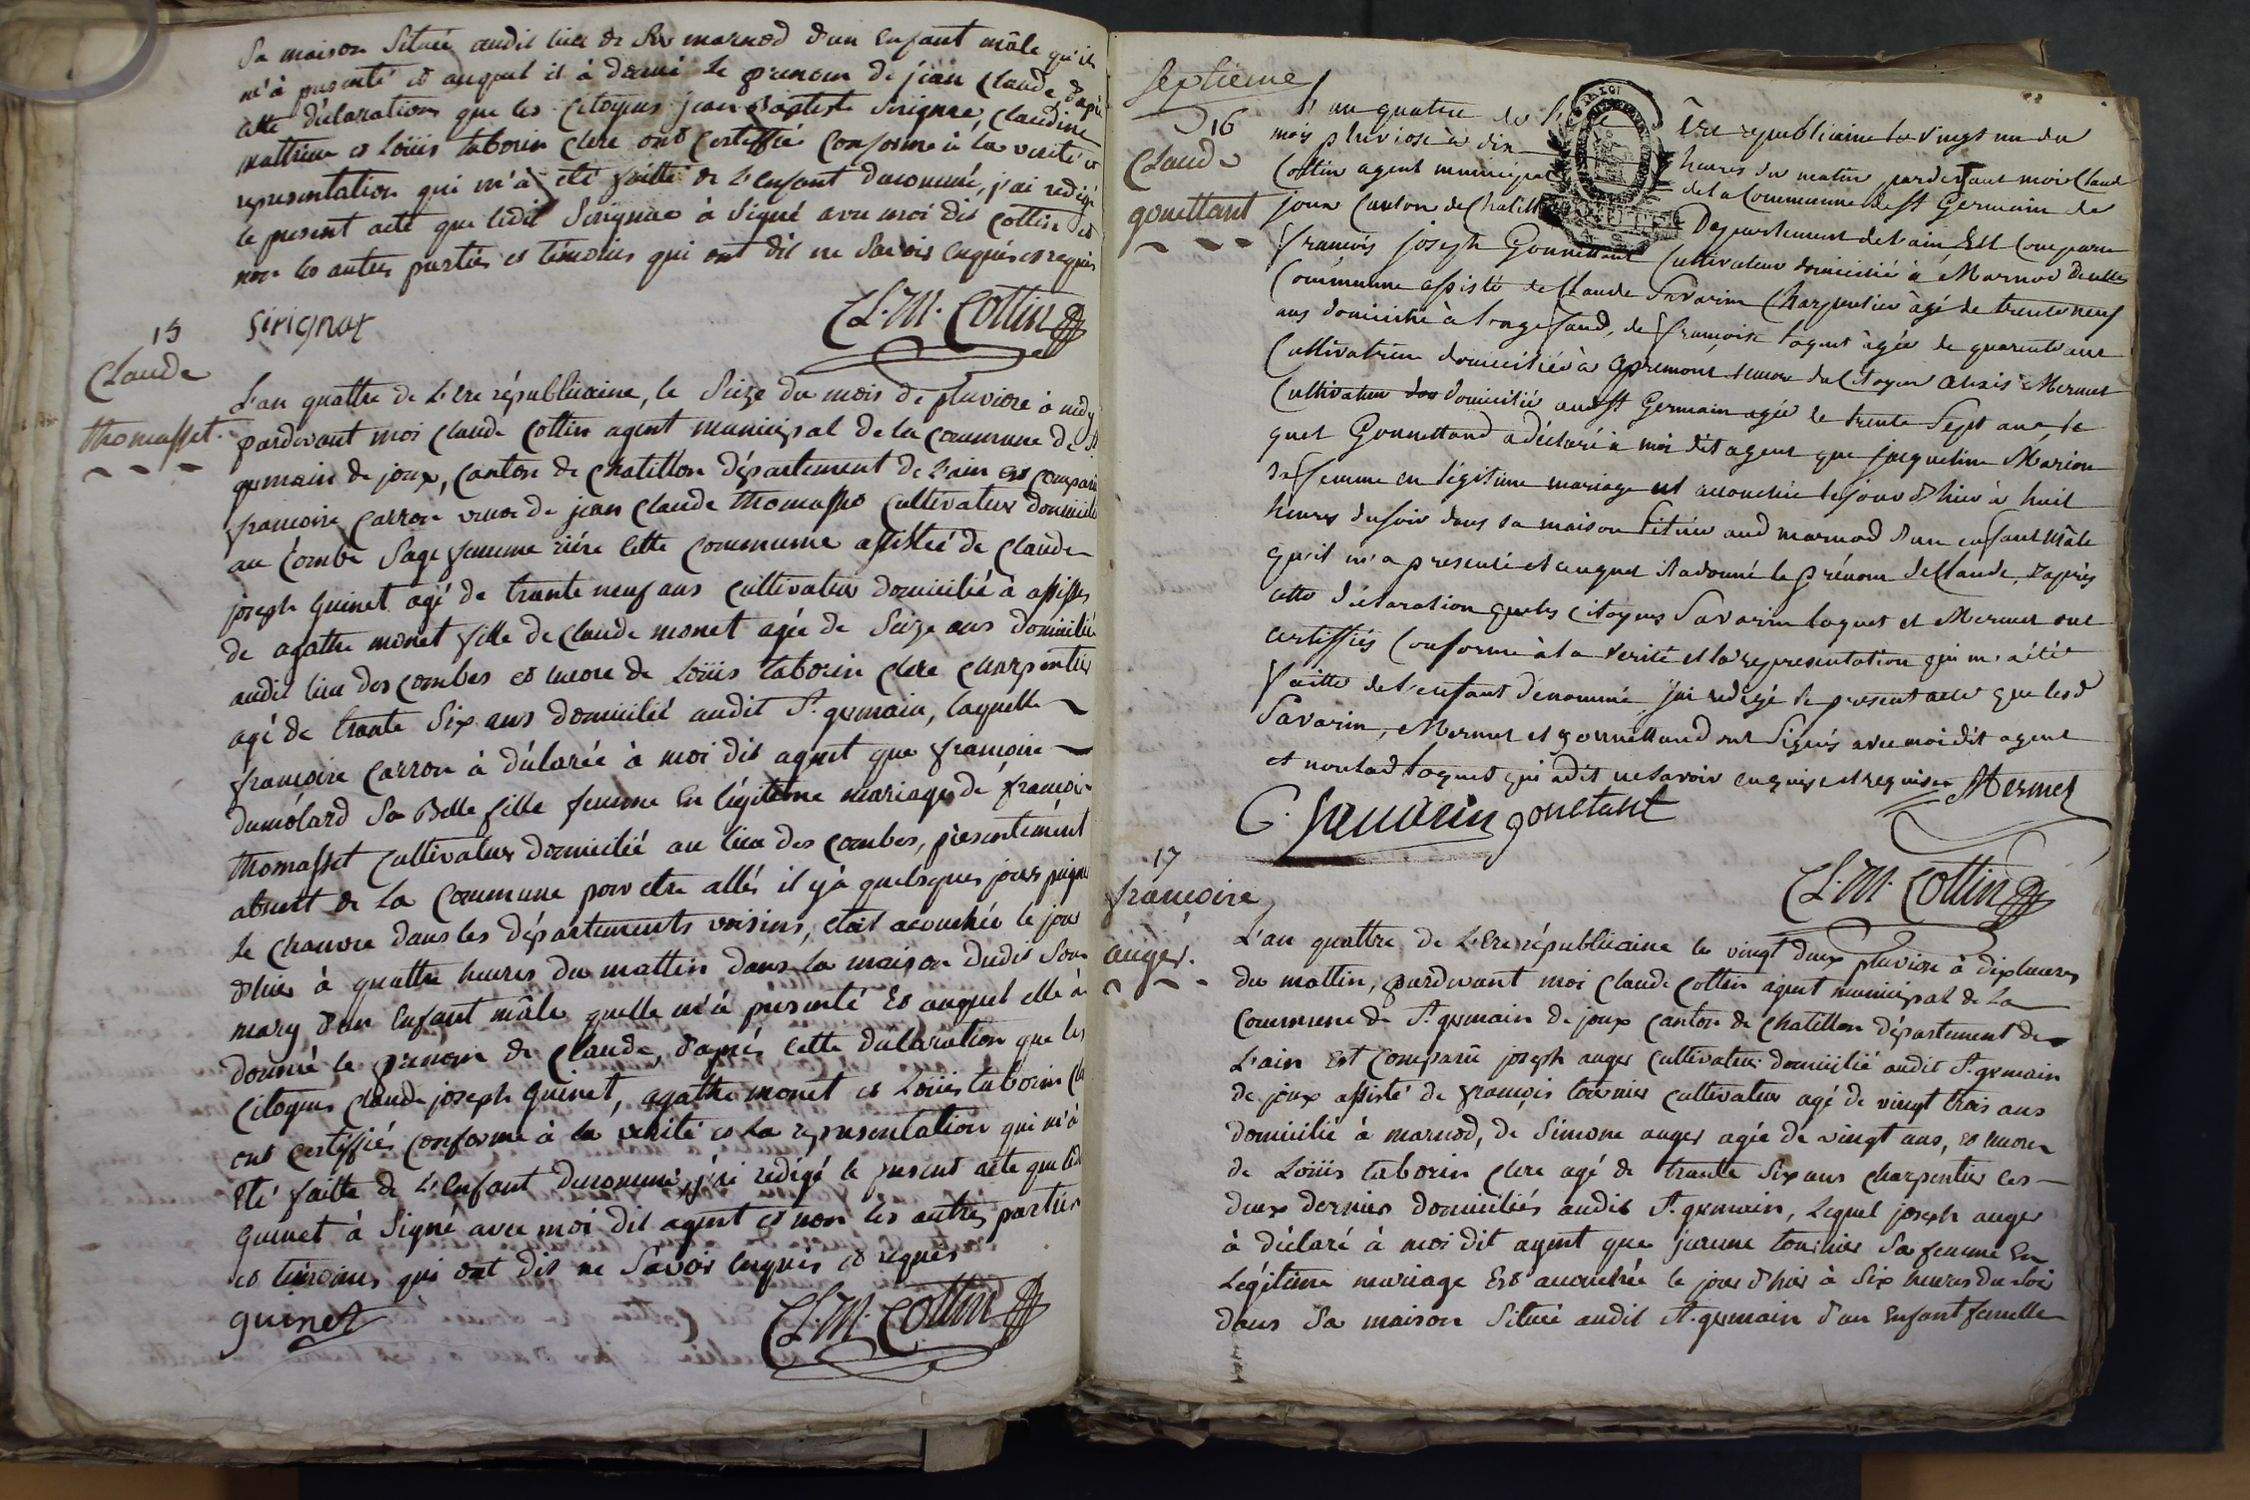 Sa maison Située audit lieu de marnod d'un Enfant mâle qu'il
m'à presenté et auquel il à donné le prenom de jean Claude d'après
cette déclaration que les Citoyens jean Baptiste Sirignac, Claudine
et Loüis taborin Clerc ont Certiffié Conforme à la verité et
representation qui m'à été faitte de L'enfant denommé, j'ai redigé
le present acte que ledit Sirignac à Signé avec moi dit Cottin et
non les autres parties et témoins qui ont dit ne Savoir enquis et requis
Sirignat
CL.M. Cottin
15
Claude
thomasset.
L'an quattre de L'Ere républicaine, le Seize du mois de pluviose à midy
pardevant moi Claude Cottin agent municipal de la Commune de St
germain de joux, Canton de Chatillon département de L'ain est comparu
françoise Carron veuve de jean Claude thomasset Cultivateur domicilié
au Combe Sage femme rière Cette Commune assistée de Claude
joseph Guinet agé de trante neuf ans Cultivateur domicilié à
de agathe monet fille de Claude monet agée de Seize ans domiciliée
audit lieu des Combes et encore de Loüis taborin Clerc Charpentier
agé de trante Six ans domicilié audit St. germain, laquelle
françoise Carron à déclarée à moi dit agent que françoise
dumolard Sa Belle fille femme En légitime mariage de françois
thomasset Cultivateur domicilié au lieu des Combes, présentement
absent de la Commune pour etre allés il y à quelsques jours peigner
le Chanvre dans les départements voisins, étoit acouchée le jour
d'hier à quattre heures du mattin dans la maison dudit Son
mary d'un Enfant mâle quelle m'à presenté Et auquel elle à
donné le prenom de Claude, d'après Cette déclaration que les
Citoyens Claude joseph Guinet, agathe monet et Loüis taborin
ont Certiffié Conforme à la verité et la representation qui m'à
Eté faitte de L'Enfant denommé, j'ai redigé le present acte que led
Guinet à Signé avec moi dit agent et non les autres parties
et témoins qui ont dit ne Savoir enquis et requis
guinet
CL.M. Cottin
Septieme
16
Claude
gouettant
L'an quatre de Ere republicaine le vingt un du
mois pluviose à dix heures du matin pardevant moi Claude
Cottin agent municipal de la Commune de St Germain de
joux Canton de Chatill Departement de l'ain Est Comparu
françois joseph Gounettant Cultivateur domicilié à Marnod de cette
Commune assisté de Claude Savarin Charpentier agé de trente neuf
ans domicilié à de françoise toquet agée de quarente ans
Cultivatrice domiciliée à apremont encore du Citoyen alexis Mermet
Cultivateur domicilié aud St Germain agée de trente Sept ans, le
quel Gounettand a déclaré à moi dit agent que jacqueline Marion
Sa femme en légitime mariage est accouchée le jour d'hier à huit
heures du soir dans sa maison Située aud marnod d'un enfant Mâle
qu'il m'a presenté et auquel il a donné le prénom de Claude, d'après
cette déclaration que les Citoyens Savarin toquet et Mermet ont
certiffiés Conforme à la verité et la representation qui m'a été
faitte de l'enfant dénommé j'ai redigé le present acte que lesd
Savarin, Mermet et gounettand ont Signés avec moi dit agent
et non lad toquet qui a dit ne Savoir enquise et requise
Mermet
C. Savarin gouetant
CL.M. Cottin
17
françoise
auger.
L'an quattre de L'Ere républicaine le vingt deux pluviose à dix heures
du mattin, pardevant moi Claude Cottin agent municipal de la
Commune de St. germain de joux Canton de Chatillon département de
L'ain Est Comparu joseph auger Cultivateur domicilié audit St. germain
de joux assisté de françois tournier Cultivateur agé de vingt trois ans
domicilié à marnod, de Simone auger agée de vingt ans, et encore
de Loüis taborin Clerc agé de trante Six ans Charpentier ces
deux dernier domiciliés audit St. germain, Lequel joseph auger
à déclaré à moi dit agent que tournier Sa femme En
Légitime mariage Est acouchée le jour d'hier à Six heures du Soir
dans Sa maison Située audit St. germain d'un Enfant femelle